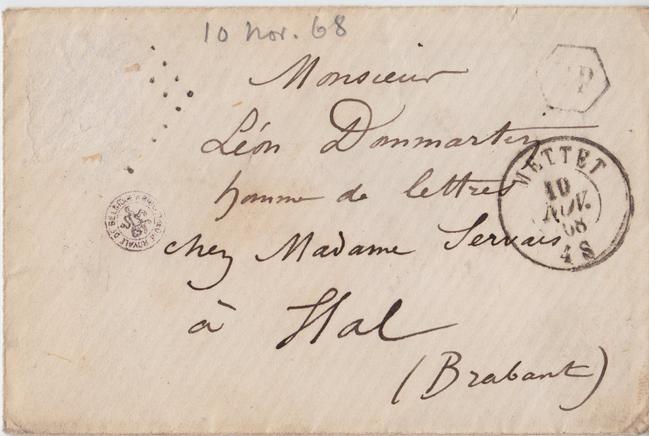 10 nov. 68
P
Monsieur
Léon Dommartin
homme de lettres
chez Madame Servais
à Hal
(Brabant)
METTET
10
NOV.
68
4 S
ROYALE DE BELGIQUE